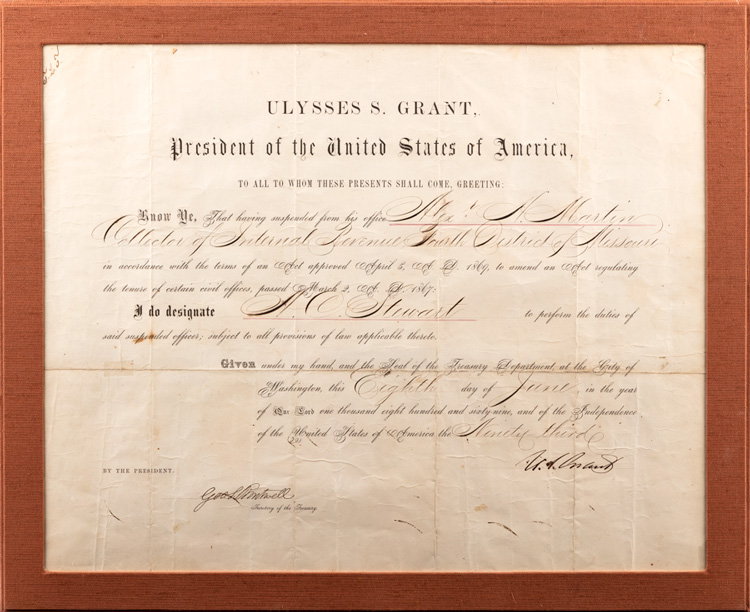 ULYSSES S. GRANT,
President of the United States of America,
TO ALL TO WHOM THESE PRESENTS SHALL COME, GREETING:
Know Ye, That having suspended from his office Alexr. N. Martin
Collector of Internal Revenue Fourth District of Missouri
in accordance with the terms of an Act approved April 5, A. D. 1869, to amend an Act regulating
the tenure of certain civil offices, passed March 2, A. D. 1867:
I do designate A. C. Stewart to perform the duties of
said suspended officer; subject to all provisions of law applicable thereto.
Given under my hand, and the Seal of the Treasury Department, at the City of
Washington, this Eighth day of June in the year
of Our Lord one thousand eight hundred and sixty-nine, and of the Independence
of the United States of America the Ninety third
U. S. Grant
BY THE PRESIDENT.
Geo S Boutwell
Secretary of the Treasury.